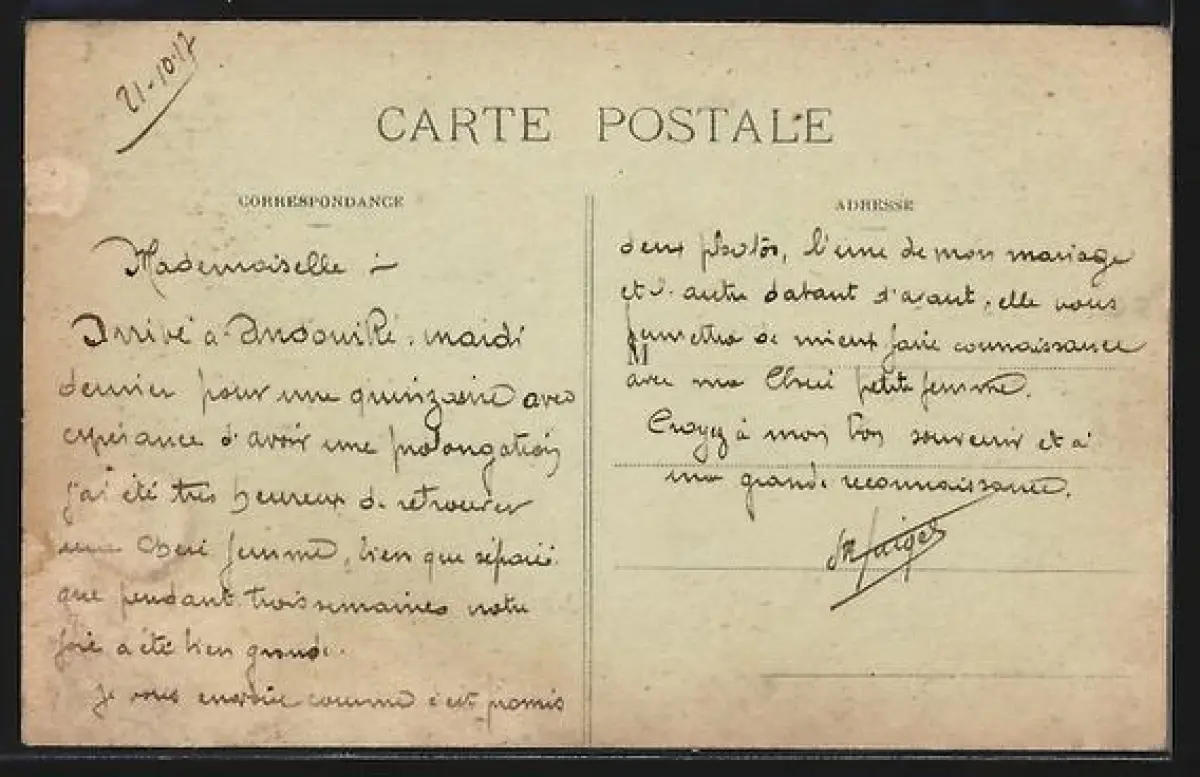 21-10-17
CARTE POSTALE
CORRESPONDANCE
Mademoiselle :-
Arrivé à Andouillé, mardi
dernier pour une quinzaine avec
espérance d'avoir une prolongation
j'ai été très heureux de retrouver
ma Chère femme, bien que séparé
que pendant trois semaines notre
joie a été bien grande.
Je vous envoie comme c'est promis
ADRESSE
deux photos, l'une de mon mariage
et l'autre datant d'avant, elle vous
permettra de mieux faire connaissance
M
avec ma Chère petite femme.
Croyez à mon bon souvenir et à
ma grande reconnaissance.